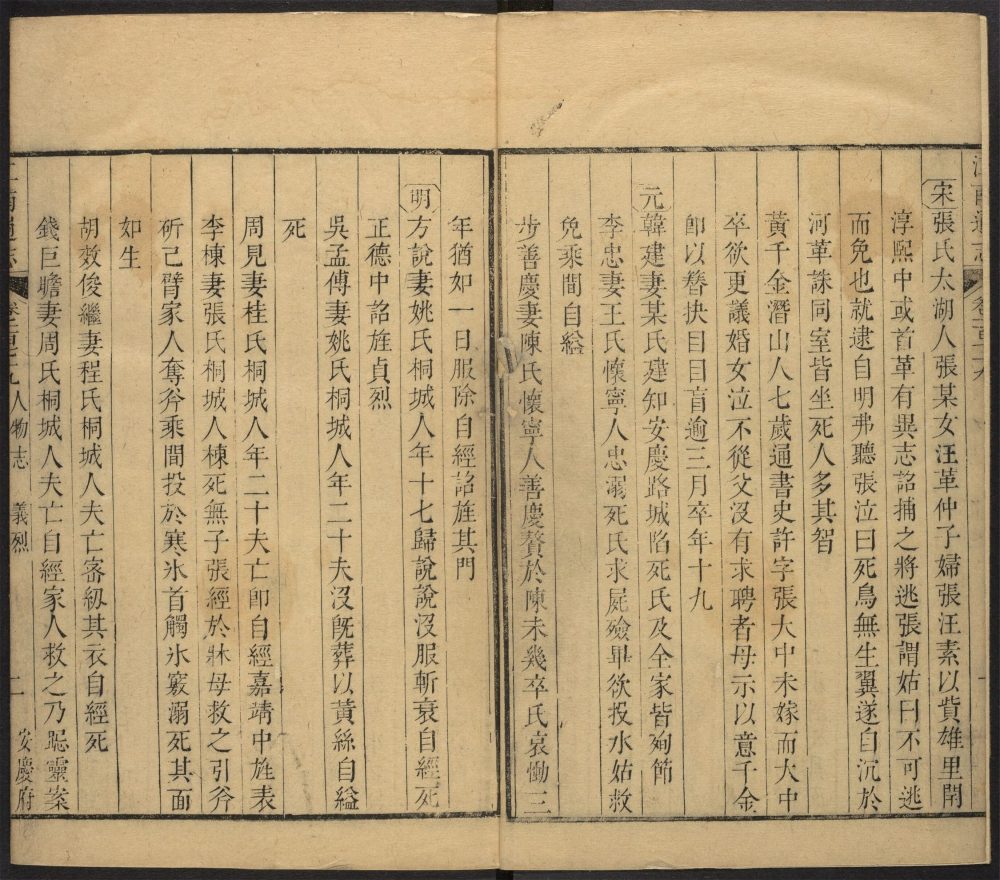 江南通志
宋張氏太湖人張某女汪革仲子婦張汪素以貲雄里閈
淳熙中或首革有異志詔捕之將逃張謂姑曰不可逃
而免也就逮自明弗聽張泣曰死鳥無生翼遂自沉於
河革誅同室皆坐死人多其智
黃千金潛山人七歲通書史許字張大中未嫁而大中
卒欲更議婚女泣不從父沒有求聘者母示以意千金
卽以簪抉目目盲逾三月卒年十九
元韓建妻某氏建知安慶路城陷死氏及全家皆殉節
李忠妻王氏懷寧人忠溺死氏求屍殮畢欲投水姑救
免乘間自縊
步善慶妻陳氏懷寧人善慶贅於陳未幾卒氏哀慟三
年猶如一日服除自經詔旌其門
明方說妻姚氏桐城人年十七歸說說沒服斬衰自經死
正德中詔旌貞烈
吳孟傅妻姚氏桐城人年二十夫沒旣葬以黃絲自縊
死
周見妻桂氏桐城人年二十夫亡卽自經嘉靖中旌表
李棟妻張氏桐城人棟死無子張經於牀母救之引斧
斫己臂家人奪斧乘間投於寒氷首觸氷竅溺死其面
如生
胡效俊繼妻程氏桐城人夫亡密紉其衣自經死
錢巨瞻妻周氏桐城人夫亡自經家人救之乃昵靈案
人物志 義烈 二 安慶府